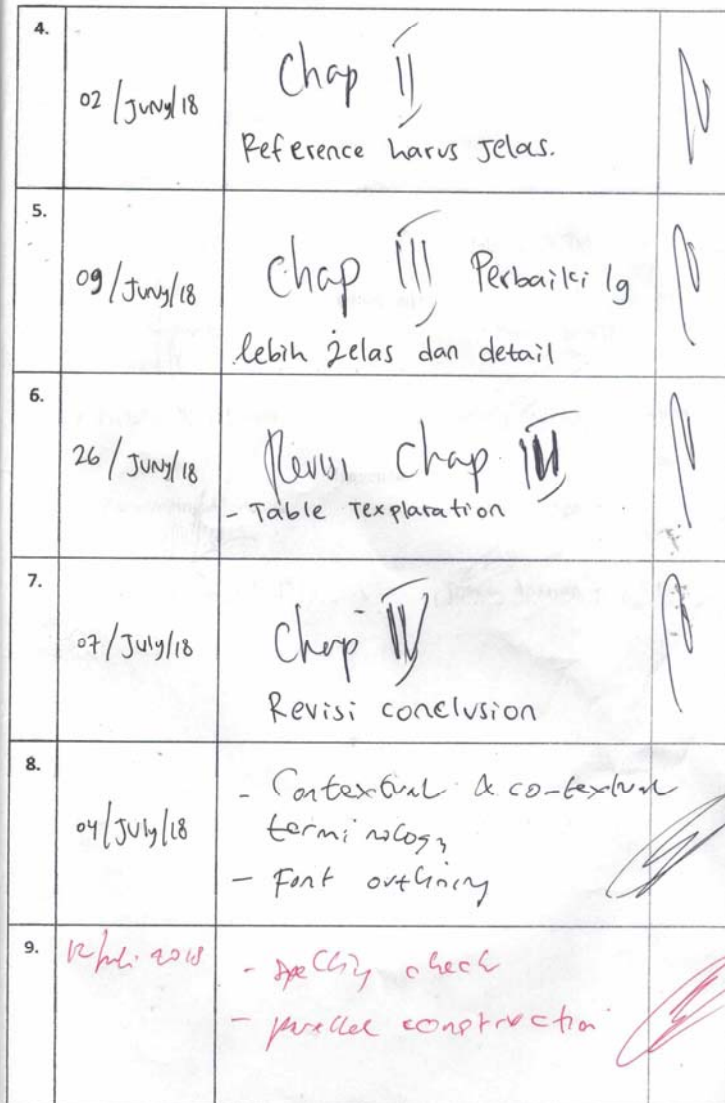 4.
02/Juny/18
Chap II
Reference harus Jelas.
5.
09/Juny/18
Chap III Perbaiki lg
lebih jelas dan detail
6.
26/Juny/18
Revisi Chap III
- Table Texplaration
7.
07/July/18
Chap IV
Revisi conclusion
8.
04/July/18
- Contextual & co-textual
terminology
- Font outlining
9.
12 Juli 2018
- spelling check
- parallel construction